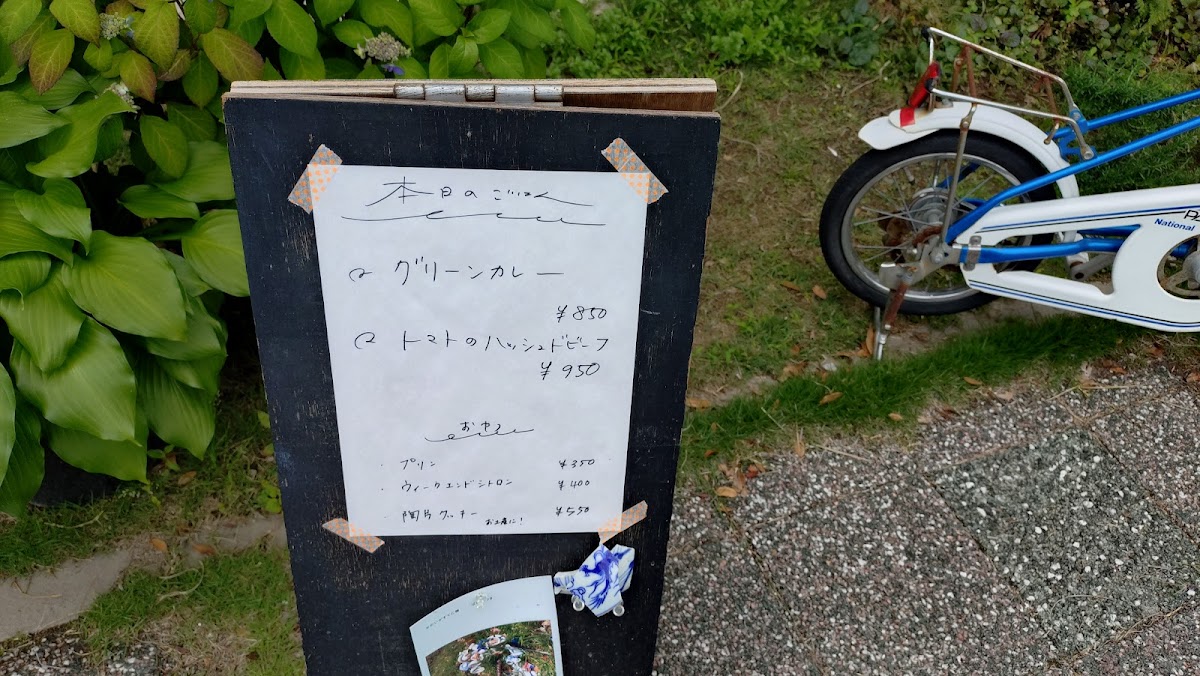 本日のごはん
グリーンカレー
¥850
トマトのハッシュドビーフ
¥950
おやつ
・プリン ¥350
・ウィークエンドシトロン ¥400
・陶片クッキー ¥550
お土産に!
National